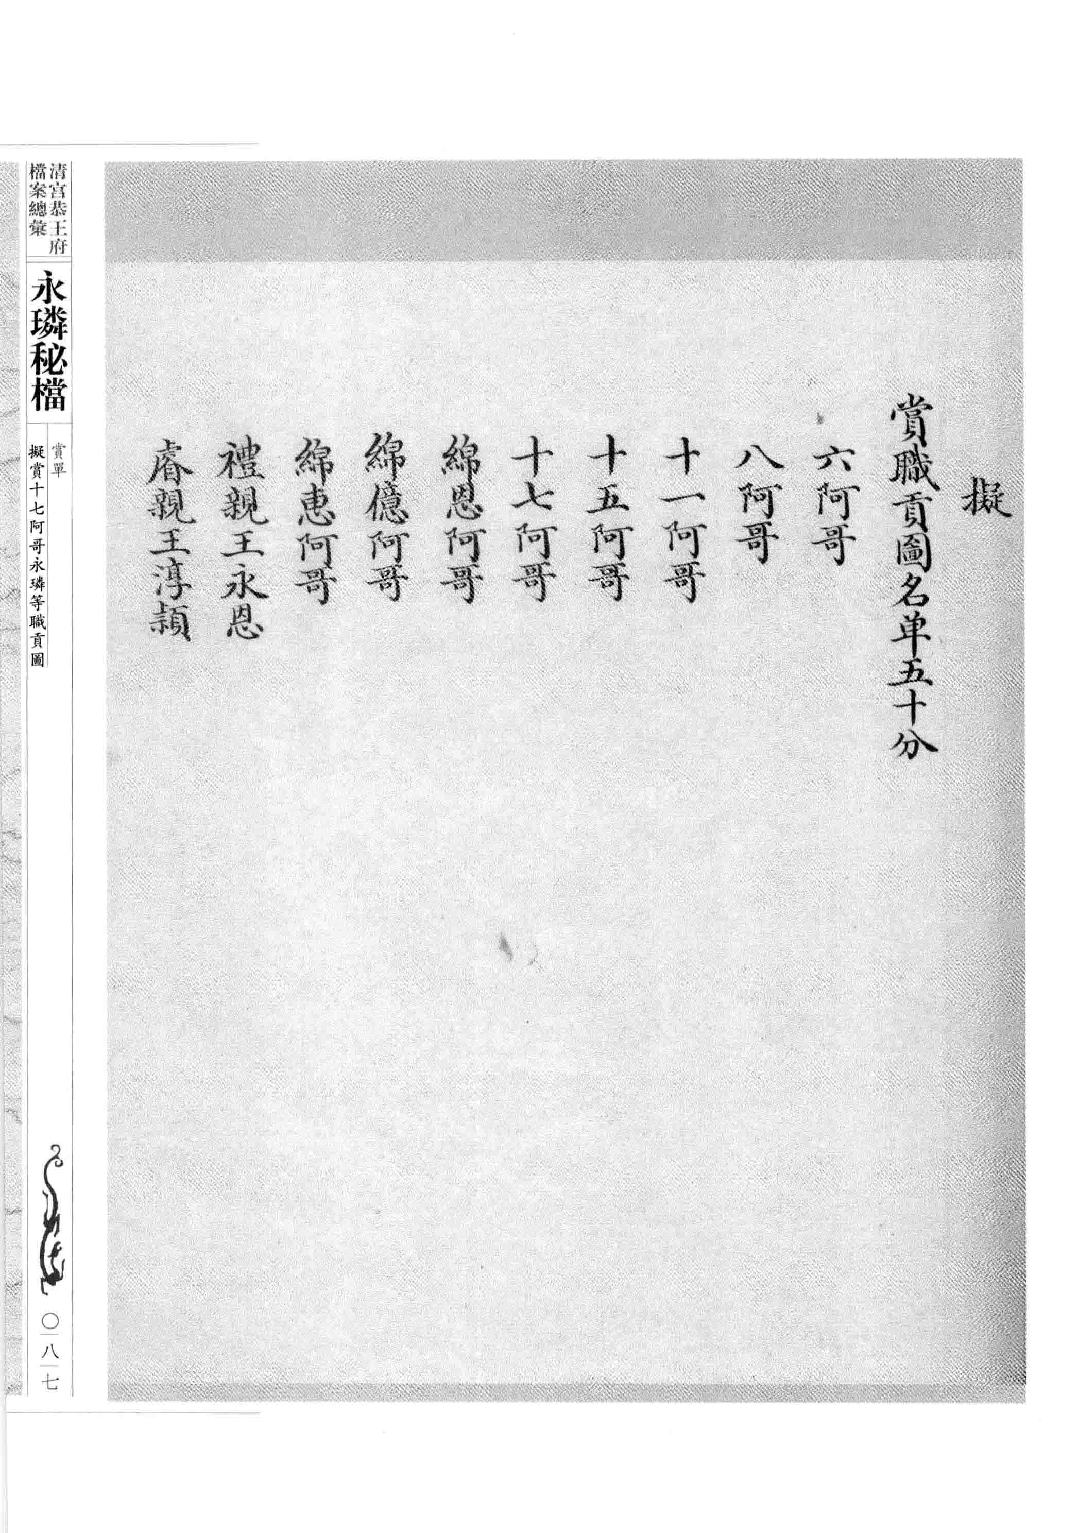 擬
賞職貢圖名单五十分
六阿哥
八阿哥
十一阿哥
十五阿哥
十七阿哥
綿恩阿哥
綿億阿哥
綿惠阿哥
禮親王永恩
睿親王淳穎
清宮恭王府
檔案總彙
永璘秘檔
賞單
擬賞十七阿哥永璘等職貢圖
〇八七